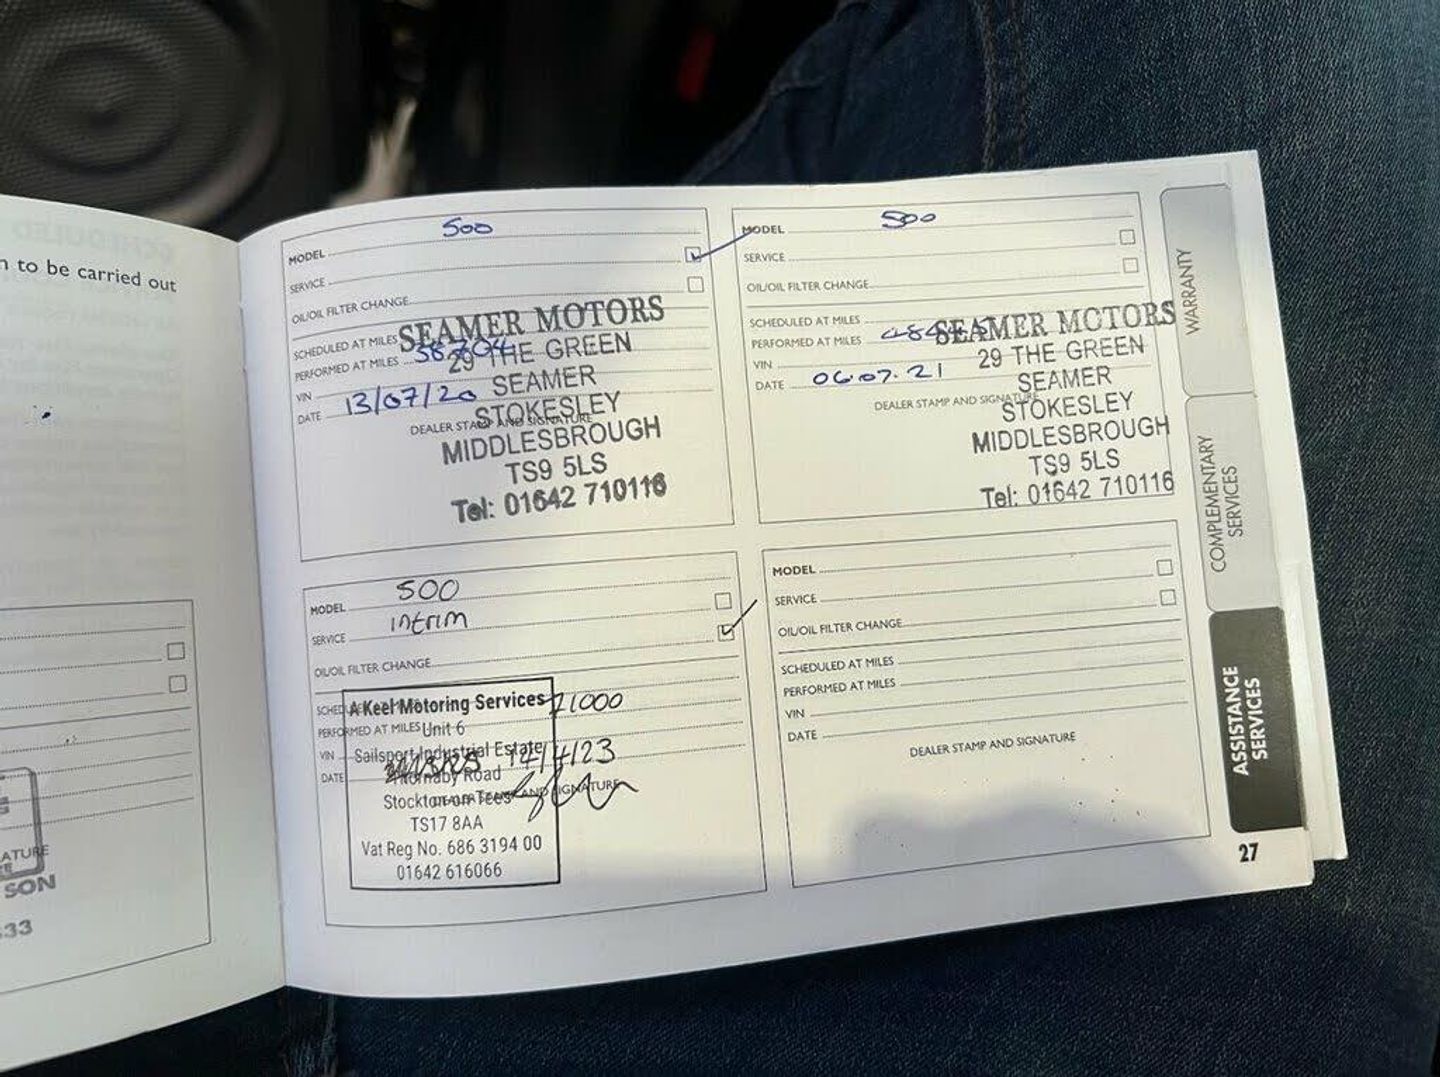 n to be carried out
ATURE
SON
33
MODEL 500
SERVICE
OIL/OIL FILTER CHANGE
SCHEDULED AT MILES
PERFORMED AT MILES 38704
VIN
DATE 13/07/20
DEALER STAMP AND SIGNATURE
SEAMER MOTORS
29 THE GREEN
SEAMER
STOKESLEY
MIDDLESBROUGH
TS9 5LS
Tel: 01642 710116
MODEL 500
SERVICE
OIL/OIL FILTER CHANGE
SCHEDULED AT MILES
PERFORMED AT MILES
VIN
DATE 06.07.21
DEALER STAMP AND SIGNATURE
SEAMER MOTORS
29 THE GREEN
SEAMER
STOKESLEY
MIDDLESBROUGH
TS9 5LS
Tel: 01642 710116
MODEL 500
SERVICE intrim
OIL/OIL FILTER CHANGE
PERFORMED AT MILES
VIN
DATE 14/4/23
A Keel Motoring Services
Unit 6
Sailsport Industrial Estate
Thornaby Road
Stockton on Tees
TS17 8AA
Vat Reg No. 686 3194 00
01642 616066
MODEL
SERVICE
OIL/OIL FILTER CHANGE
SCHEDULED AT MILES
PERFORMED AT MILES
VIN
DATE
DEALER STAMP AND SIGNATURE
WARRANTY
COMPLEMENTARY
SERVICES
ASSISTANCE
SERVICES
27